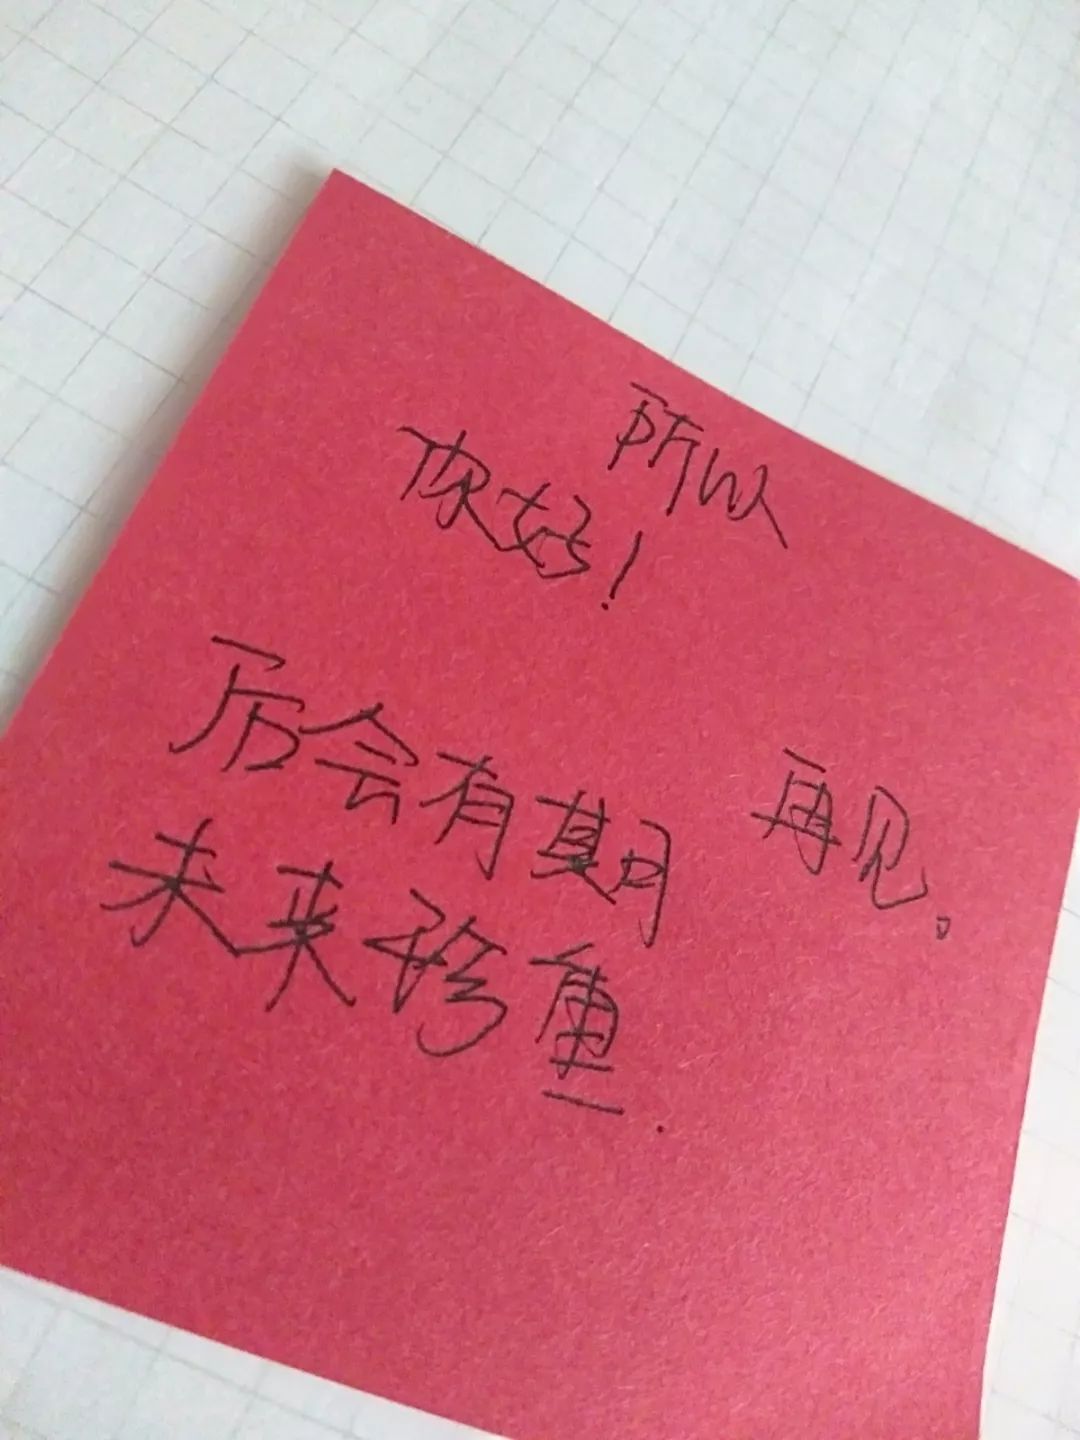 所以
你好！
后会有期
再见。
未来珍重.